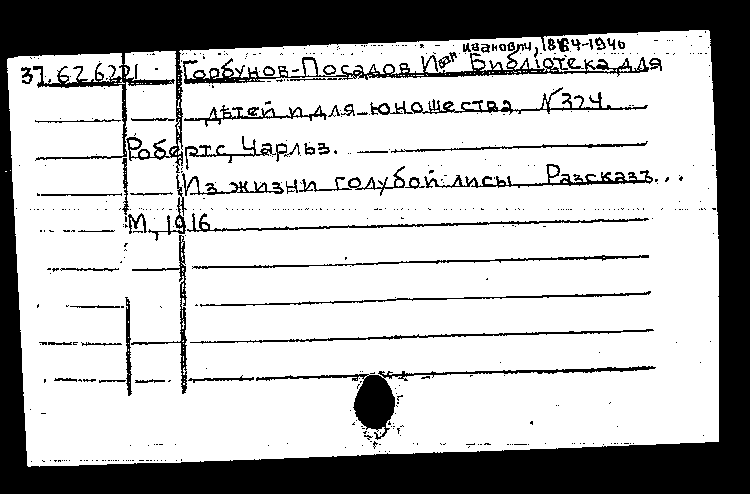 37.626221 Горбунов-Посадов Иван Ивановичъ, 1864-1940 Библіотека для
дѣтей и для юношества, N324.
Робертс, Чарльз.
Из жизни голубой лисы Разсказъ...
М., 1916